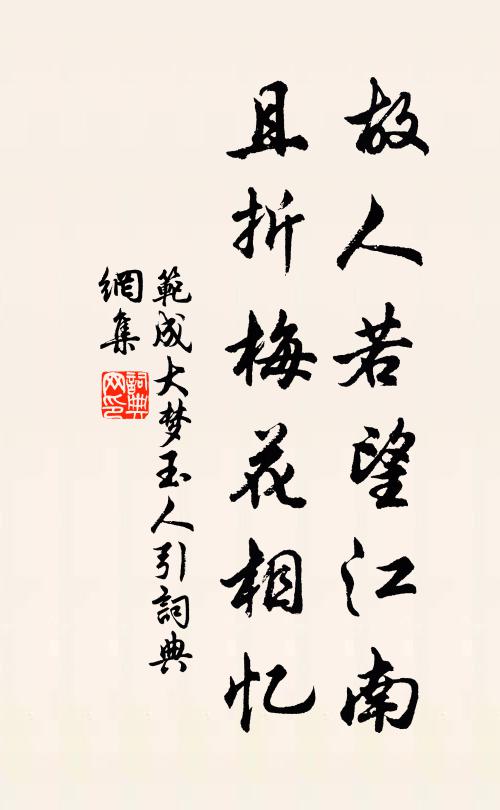 故人若望江南
且折梅花相忆
範成大梦玉人引詞典
網集
詞典
网印